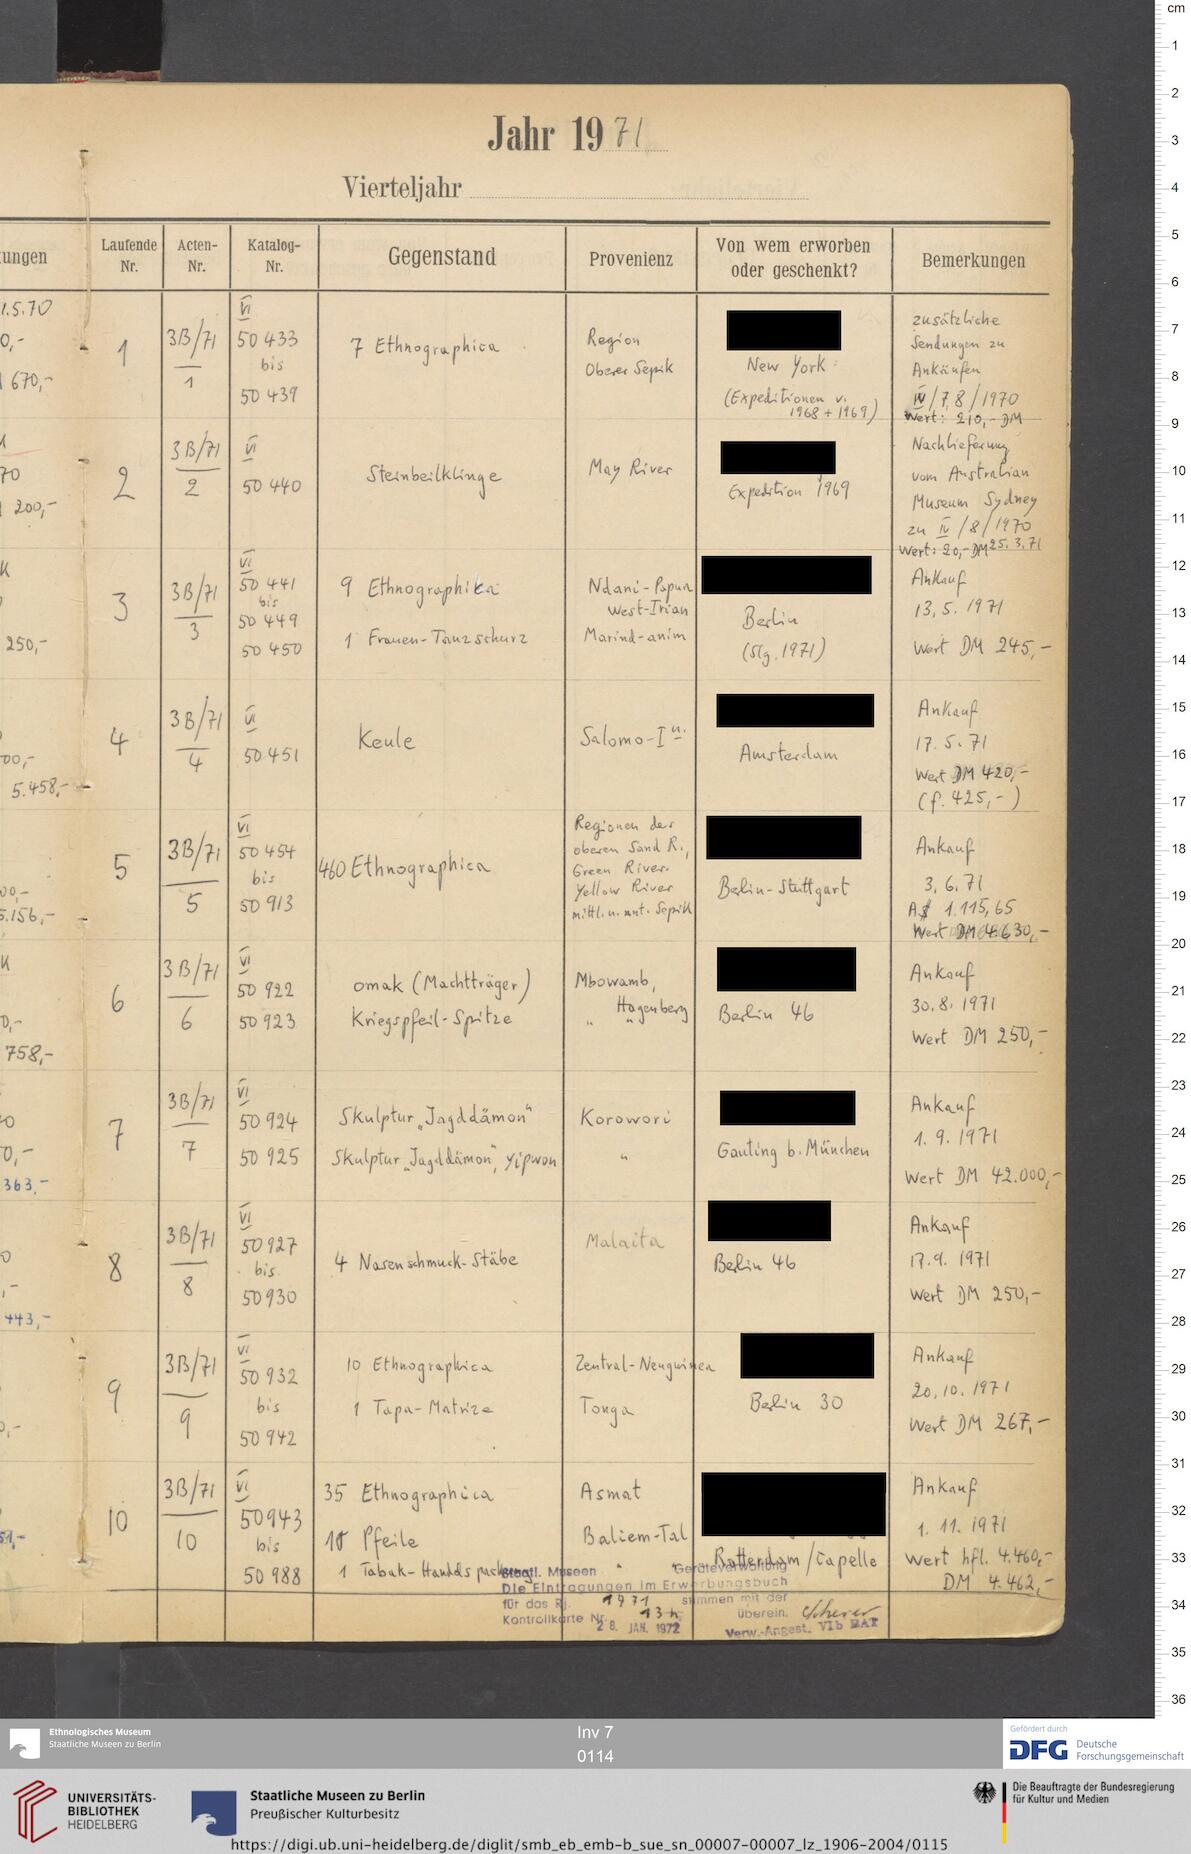 Jahr 1971
Vierteljahr
ungen
Laufende Nr.
Acten-Nr.
Katalog-Nr.
Gegenstand
Provenienz
Von wem erworben oder geschenkt?
Bemerkungen
1.5.70
0,-
670,-
1
3B/71
1
VI
50 433
bis
50 439
7 Ethnographica
Region
Oberer Sepik
New York
(Expeditionen v.
1968 + 1969)
zusätzliche
Sendungen zu
Ankäufen
IV/7,8/1970
Wert: 210,- DM
70
200,-
2
3B/71
2
VI
50 440
Steinbeilklinge
May River
Expedition 1969
Nachlieferung
vom Australian
Museum Sydney
zu IV/8/1970
Wert: 20,- DM 25.3.71
K
250,-
3
3B/71
3
VI
50 441
bis
50 449
50 450
9 Ethnographika
1 Frauen-Tanzschurz
Ndani-Papua
West-Irian
Marind-anim
Berlin
(Slg. 1971)
Ankauf
13.5.1971
Wert DM 245,-
00,-
5.458,-
4
3B/71
4
VI
50 451
Keule
Salomo-In.
Amsterdam
Ankauf
17.5.71
Wert DM 420,-
(f. 425,-)
00,-
5.156,-
5
3B/71
5
VI
50 454
bis
50 913
460 Ethnographica
Regionen der
oberen Sand R.,
Green River.
Yellow River
mittl. u. unt. Sepik
Berlin-Stuttgart
Ankauf
3.6.71
A$ 1.115,65
Wert DM 4.630,-
K
0,-
758,-
6
3B/71
6
VI
50 922
50 923
omak (Machtträger)
Kriegspfeil-Spitze
Mbowamb,
Hagenberg
" "
Berlin 46
Ankauf
30.8.1971
Wert DM 250,-
0,-
363,-
7
3B/71
7
VI
50 924
50 925
Skulptur „Jagddämon"
Skulptur „Jagddämon", yipwon
Korowori
"
Gauting b. München
Ankauf
1.9.1971
Wert DM 42.000,-
443,-
8
3B/71
8
VI
50 927
bis
50 930
4 Nasenschmuck-Stäbe
Malaita
Berlin 46
Ankauf
17.9.1971
Wert DM 250,-
9
3B/71
9
VI
50 932
bis
50 942
10 Ethnographica
1 Tapa-Matrize
Zentral-Neuguinea
Tonga
Berlin 30
Ankauf
20.10.1971
Wert DM 267,-
10
3B/71
10
VI
50943
bis
50 988
35 Ethnographica
10 Pfeile
1 Tabak-Handelspackung
Asmat
Baliem-Tal
" "
Rotterdam/Capelle
Ankauf
1.11.1971
Wert hfl. 4.460,-
DM 4.462,-
Staatl. Museen Geräteverwaltung
Die Eintragungen im Erwerbungsbuch
für das Rj. 1971 stimmen mit der
Kontrollkarte Nr. 13 überein.
28. JAN. 1972
Verw.-Angest. VIb BAT
cm
1
2
3
4
5
6
7
8
9
10
11
12
13
14
15
16
17
18
19
20
21
22
23
24
25
26
27
28
29
30
31
32
33
34
35
36
Ethnologisches Museum
Staatliche Museen zu Berlin
Inv 7
0114
Gefördert durch
DFG Deutsche
Forschungsgemeinschaft
UNIVERSITÄTS-
BIBLIOTHEK
HEIDELBERG
Staatliche Museen zu Berlin
Preußischer Kulturbesitz
Die Beauftragte der Bundesregierung
für Kultur und Medien
https://digi.ub.uni-heidelberg.de/diglit/smb_eb_emb-b_sue_sn_00007-00007_lz_1906-2004/0115